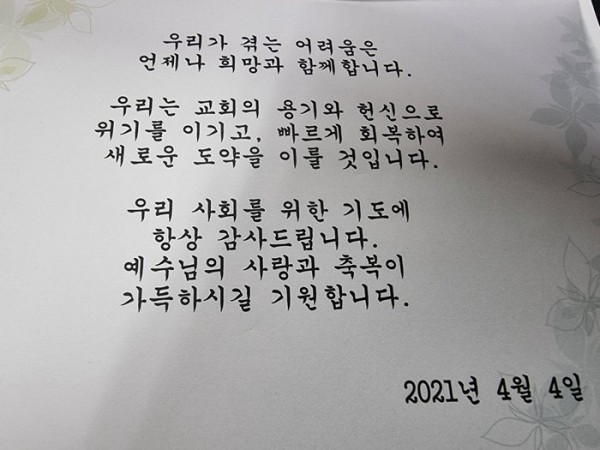 우리가 겪는 어려움은
언제나 희망과 함께합니다.
우리는 교회의 용기와 헌신으로
위기를 이기고, 빠르게 회복하여
새로운 도약을 이룰 것입니다.
우리 사회를 위한 기도에
항상 감사드립니다.
예수님의 사랑과 축복이
가득하시길 기원합니다.
2021년 4월 4일